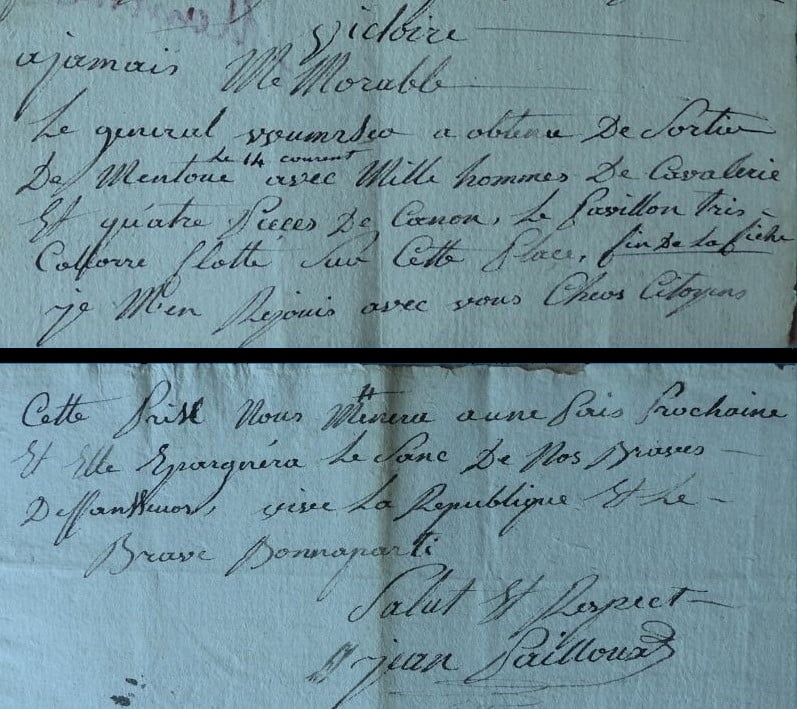 victoire
ajamais Me Morable
Le general vvumrseo a obtenu De Sortir
De Mentoue Le 14 courent avec Mille hommes De Cavalerie
Et quatre Pieces De Canon, Le Pavillon tris-
Collorre flotte Sur Cette Place, fin De La fiche
je M'en Rejouis avec vous Chers Citoyens
Cette Prise Nous Menera a une Pais Prochaine
Et Elle Epargnéra Le Sanc De Nos Braves
Deffanseurs, vive La Republique Et Le
Brave Bonnaparti
Salut Et Respect
jean Pailloux